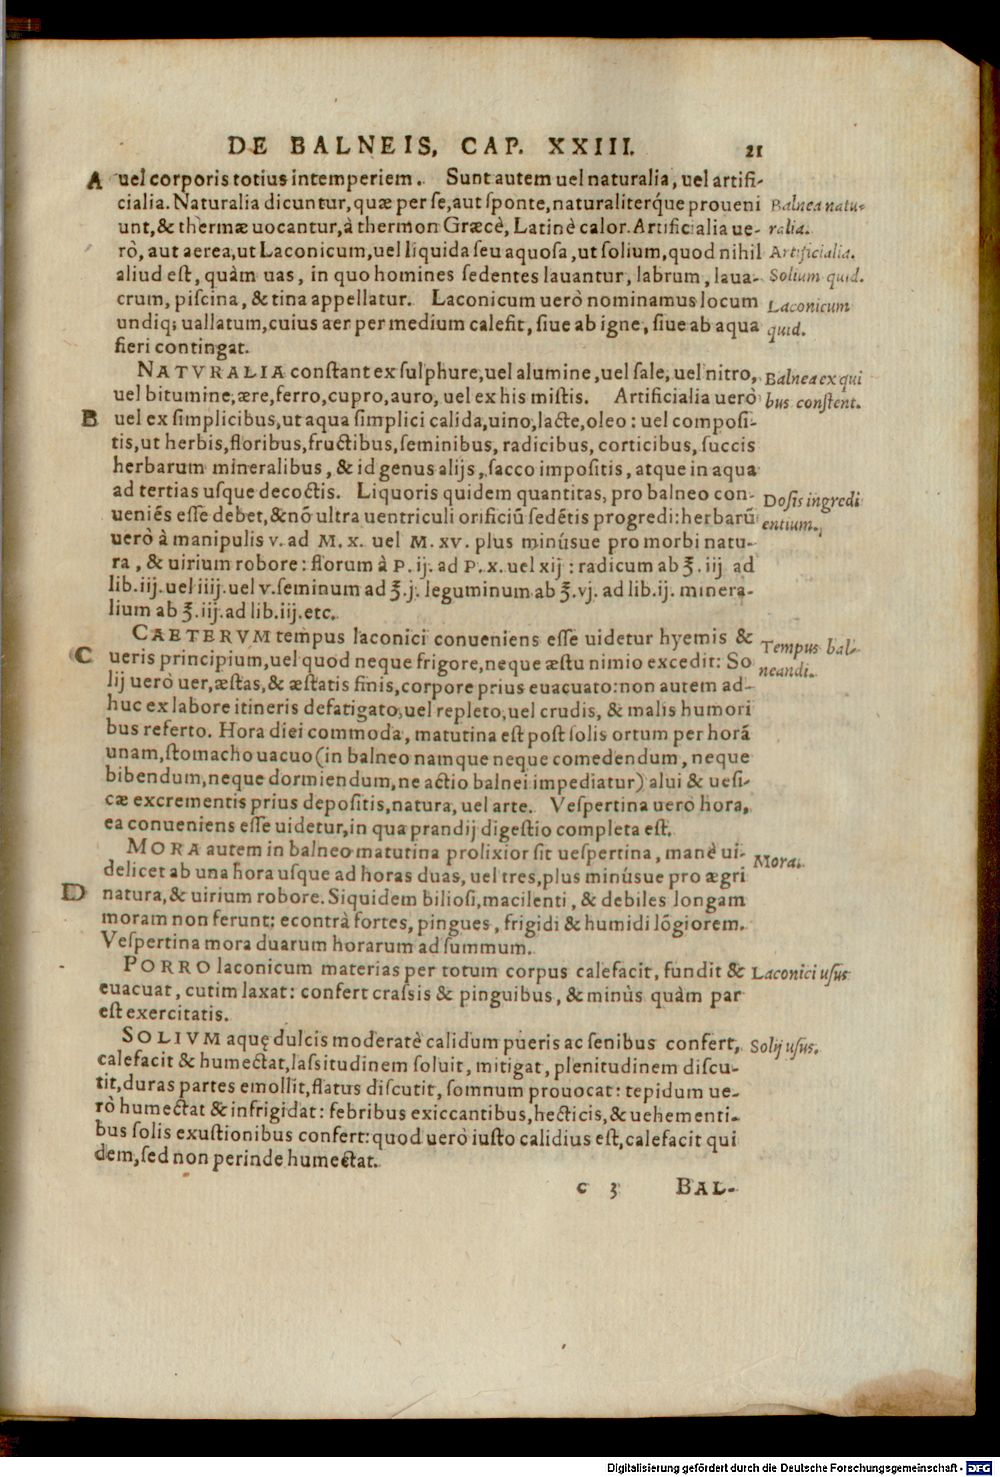 DE BALNEIS, CAP. XXIII. 21
A uel corporis totius intemperiem. Sunt autem uel naturalia, uel artifi-
cialia. Naturalia dicuntur, quæ per se, aut sponte, naturaliterq́ue proueni Balnea natu-
unt, & thermæ uocantur, à thermon Græcè, Latinè calor. Artificialia ue- ralia.
rò, aut aerea, ut Laconicum, uel liquida seu aquosa, ut solium, quod nihil Artificialia.
aliud est, quàm uas, in quo homines sedentes lauantur, labrum, laua- Solium quid.
crum, piscina, & tina appellatur. Laconicum uerò nominamus locum Laconicum
undiq; uallatum, cuius aer per medium calefit, siue ab igne, siue ab aqua quid.
fieri contingat.
NATVRALIA constant ex sulphure, uel alumine, uel sale, uel nitro, Balnea ex qui
uel bitumine, ære, ferro, cupro, auro, uel ex his mistis. Artificialia uerò bus constent.
B uel ex simplicibus, ut aqua simplici calida, uino, lacte, oleo: uel composi-
tis, ut herbis, floribus, fructibus, seminibus, radicibus, corticibus, succis
herbarum mineralibus, & id genus alijs, sacco impositis, atque in aqua
ad tertias usque decoctis. Liquoris quidem quantitas, pro balneo con- Dosis ingredi
ueniẽs esse debet, & nõ ultra uentriculi orificiũ sedẽtis progredi: herbarũ entium.
uerò à manipulis v. ad M. x. uel M. xv. plus minúsue pro morbi natu-
ra, & uirium robore: florum à P. ij. ad P. x. uel xij: radicum ab ℥. iij ad
lib. iij. uel iiij. uel v. seminum ad ℥. j. leguminum ab ℥. vj. ad lib. ij. minera-
lium ab ℥. iij. ad lib. iij. etc.
CAETERVM tempus laconici conueniens esse uidetur hyemis & Tempus bal-
C ueris principium, uel quod neque frigore, neque æstu nimio excedit: So neandi.
lij uerò uer, æstas, & æstatis finis, corpore prius euacuato: non autem ad-
huc ex labore itineris defatigato, uel repleto, uel crudis, & malis humori
bus referto. Hora diei commoda, matutina est post solis ortum per horã
unam, stomacho uacuo (in balneo namque neque comedendum, neque
bibendum, neque dormiendum, ne actio balnei impediatur) alui & uesi-
cæ excrementis prius depositis, natura, uel arte. Vespertina uero hora,
ea conueniens esse uidetur, in qua prandij digestio completa est.
MORA autem in balneo matutina prolixior sit uespertina, manè ui- Mora.
delicet ab una hora usque ad horas duas, uel tres, plus minúsue pro ægri
D natura, & uirium robore. Siquidem biliosi, macilenti, & debiles longam
moram non ferunt: econtrà fortes, pingues, frigidi & humidi lõgiorem.
Vespertina mora duarum horarum ad summum.
PORRO laconicum materias per totum corpus calefacit, fundit & Laconici usus
euacuat, cutim laxat: confert crassis & pinguibus, & minùs quàm par
est exercitatis.
SOLIVM aquę dulcis moderatè calidum pueris ac senibus confert, Solij usus.
calefacit & humectat, lassitudinem soluit, mitigat, plenitudinem discu-
tit, duras partes emollit, flatus discutit, somnum prouocat: tepidum ue-
rò humectat & infrigidat: febribus exiccantibus, hecticis, & uehementi-
bus solis exustionibus confert: quod uerò iusto calidius est, calefacit qui
dem, sed non perinde humectat.
c 3 BAL-
Digitalisierung gefördert durch die Deutsche Forschungsgemeinschaft - DFG